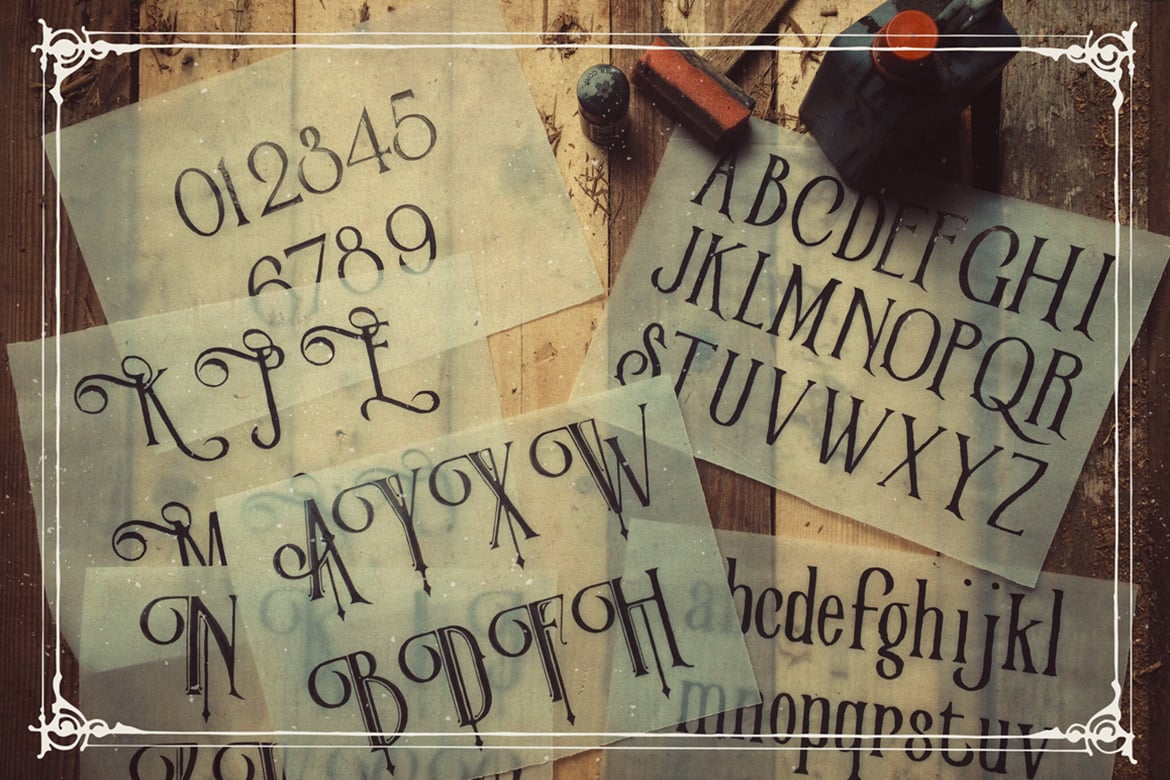 012345
6789
K J L
M
N
A Y X W
B D F H
ABCDEFGHI
JKLMNOPQR
STUVWXYZ
abcdefghijkl
mnopqrstuv